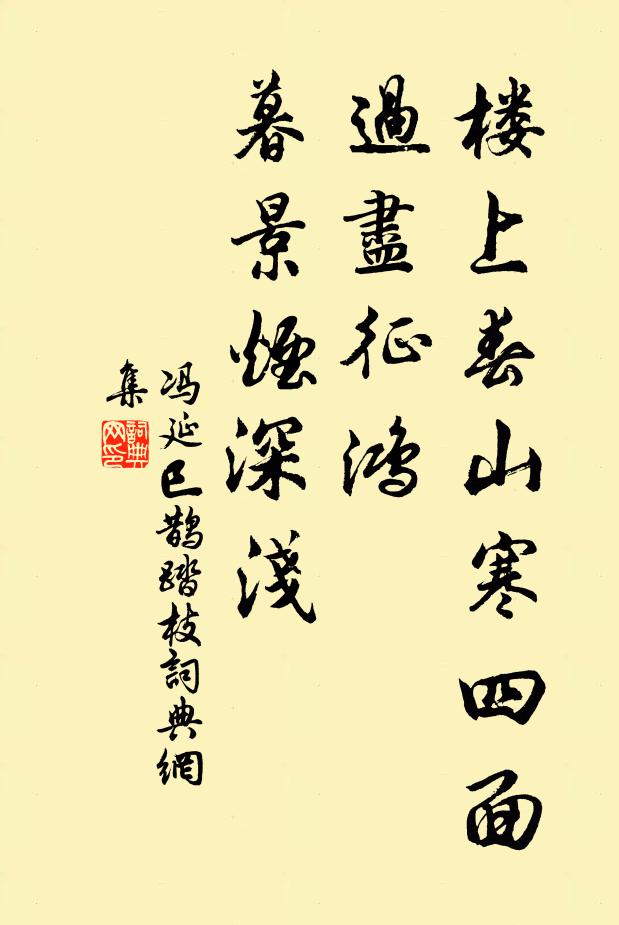 楼上春山寒四面
過盡征鴻
暮景煙深淺
冯延巳鹊踏枝詞典網
集
詞典
网印